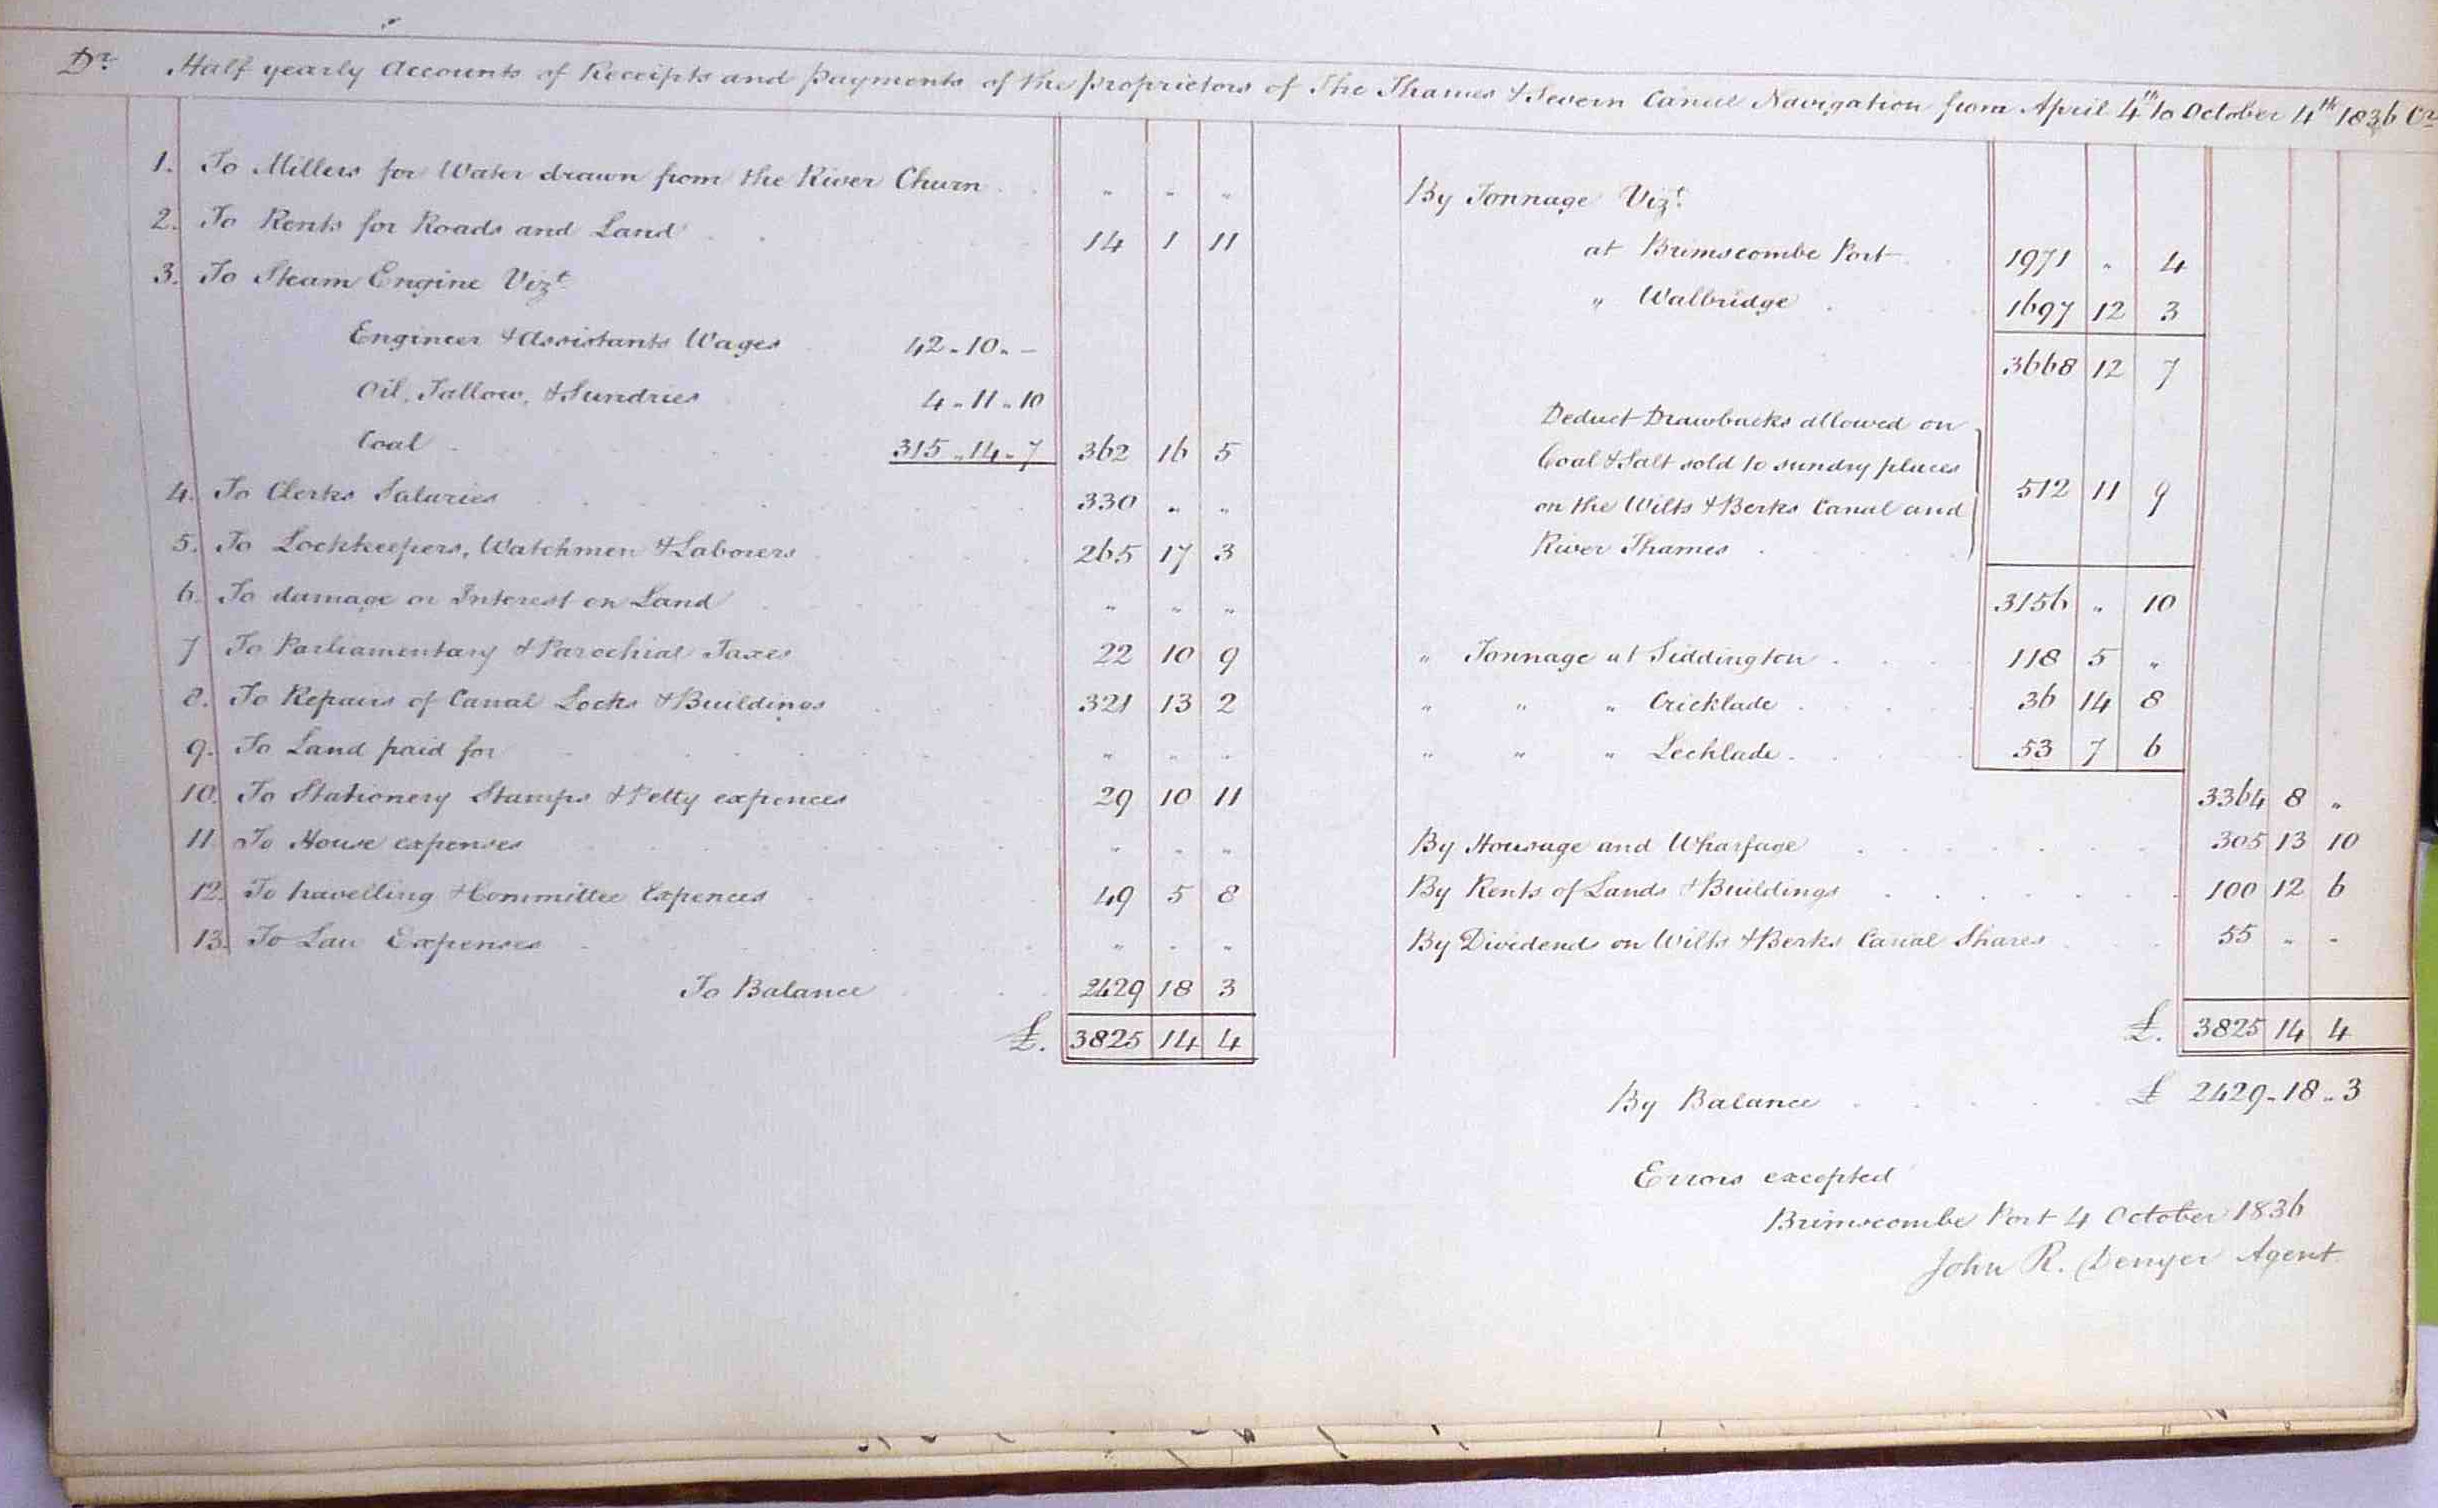 Dr. Half yearly Accounts of Receipts and Payments of the Proprietors of The Thames & Severn Canal Navigation from April 4th to October 4th 1836 Cr.
1. To Millers for Water drawn from the River Churn " " "
2. To Rents for Roads and Land 14 1 11
3. To Steam Engine Vizt.
Engineer & Assistants Wages 42 " 10 " –
Oil, Tallow, & Sundries 4 " 11 " 10
Coal 315 " 14 " 7 362 16 5
4. To Clerks Salaries 330 " "
5. To Lockkeepers, Watchmen & Laborers 265 17 3
6. To damage or Interest on Land " " "
7 To Parliamentary & Parochial Taxes 22 10 9
8. To Repairs of Canal Locks & Buildings 321 13 2
9. To Land paid for " " "
10. To Stationery Stamps & Petty expences 29 10 11
11 To House expenses " " "
12. To travelling & Committee Expences 49 5 8
13. To Law Expenses " " "
To Balance 2429 18 3
£. 3825 14 4
By Tonnage Vizt.
at Brimscombe Port 1971 " 4
" Walbridge 1697 12 3
3668 12 7
Deduct Drawbacks allowed on
Coal & Salt sold to sundry places
on the Wilts & Berks Canal and
River Thames 512 11 9
3156 " 10
" Tonnage at Siddington 118 5 "
" " " Cricklade 36 14 8
" " " Lechlade 53 7 6
3364 8 "
By Housage and Wharfage 305 13 10
By Rents of Lands & Buildings 100 12 6
By Dividends on Wilts & Berks Canal Shares 55 " "
£. 3825 14 4
By Balance £ 2429 " 18 " 3
Errors excepted
Brimscombe Port 4 October 1836
John R. Denyer Agent